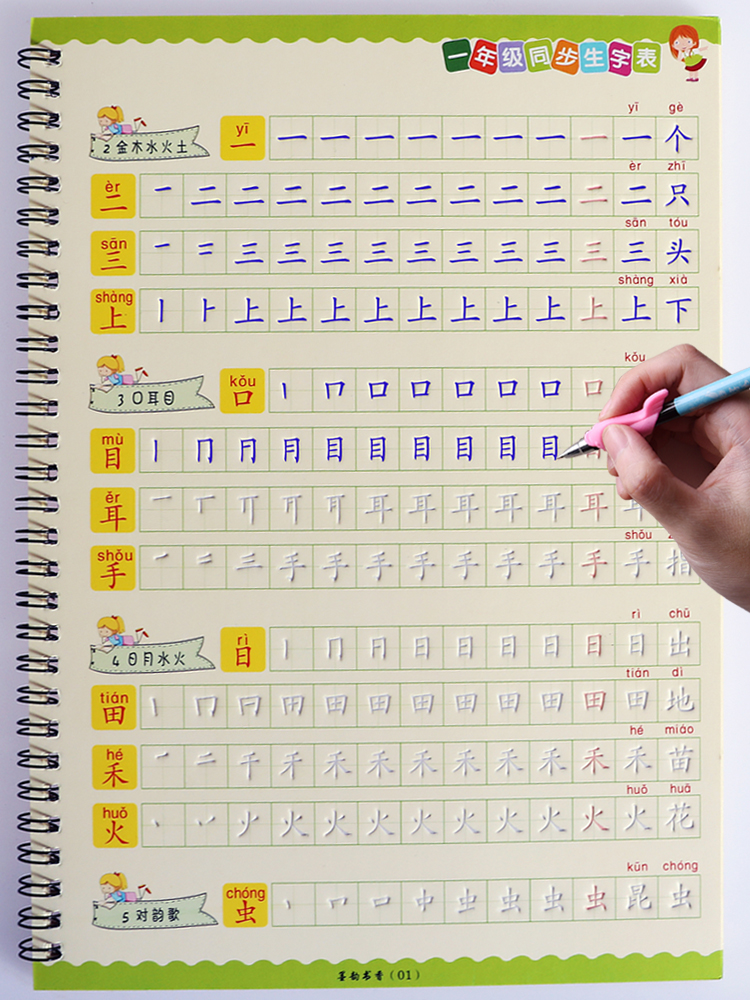 一年级同步生字表
yī gè
2 金木水火土 yī 一 一 一 一 一 一 一 一 一 一 个
èr zhī
èr 二 一 二 二 二 二 二 二 二 二 二 二 二 只
sān tóu
sān 三 一 二 三 三 三 三 三 三 三 三 三 三 头
shàng xià
shàng 上 丨 ⺊ 上 上 上 上 上 上 上 上 上 上 下
kǒu
3 口耳目 kǒu 口 丨 冂 口 口 口 口 口 口
mù 目 丨 冂 冃 月 目 目 目 目 目 目
ěr 耳 一 丅 耳 耳 耳 耳 耳 耳 耳
shǒu
shǒu 手 一 二 三 手 手 手 手 手 手 手 手 手 指
rì chū
4 日月水火 rì 日 丨 冂 月 日 日 日 日 日 日 出
tián dì
tián 田 丨 冂 冂 田 田 田 田 田 田 田 田 田 地
hé miáo
hé 禾 一 二 千 禾 禾 禾 禾 禾 禾 禾 禾 苗
huǒ huā
huǒ 火 丶 丷 火 火 火 火 火 火 火 火 火 火 花
kūn chóng
5 对韵歌 chóng 虫 丨 冖 口 中 虫 虫 虫 虫 昆 虫
墨韵书香（01）